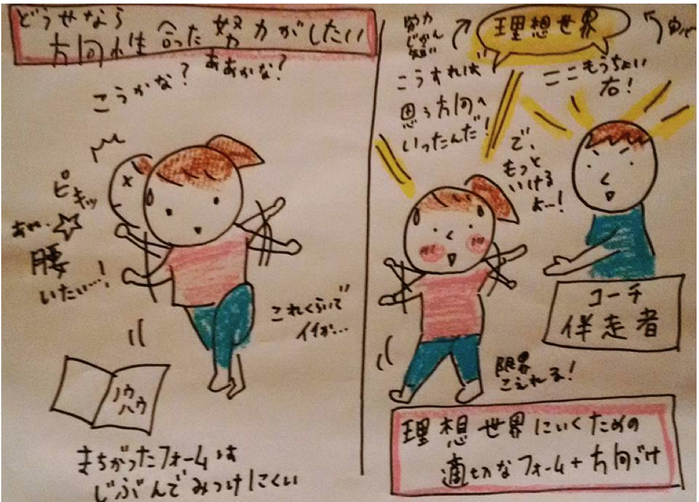 どうせなら
方向性合った努力がしたい
こうかな?
ああかな?
ピキッ
腰
いたい…!
これくらいで
イイか…
ノウ
ハウ
まちがったフォームは
じぶんでみつけにくい
理想世界
努力
こうすれば
思う方向へ
いったんだ!
ここもうちょい
右!
で、
もっと
いけるよ…!
コーチ
伴走者
限界
こえれる!
理想世界にいくための
適切なフォーム+方向づけ